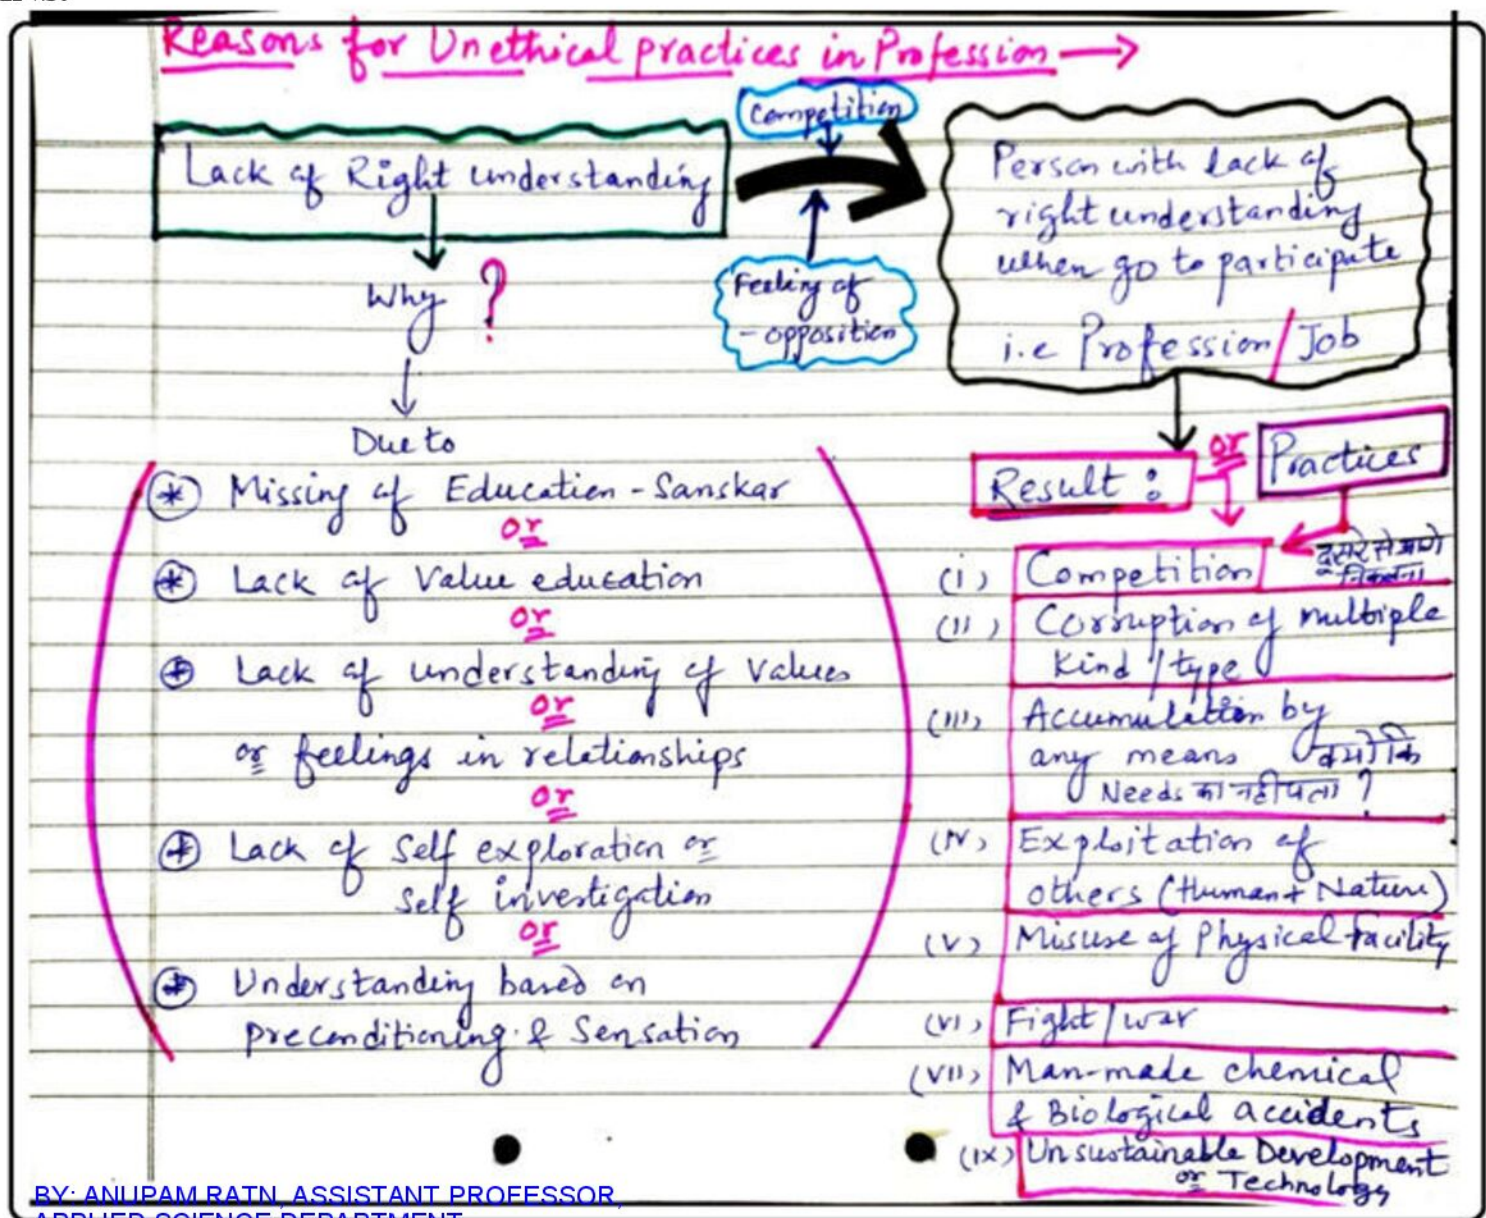 Reasons for Unethical practices in Profession →
Competition
Lack of Right understanding
Person with lack of
right understanding
when go to participate
i.e Profession / Job
Why ?
Feeling of
- opposition
Due to
Result :
or
Practices
* Missing of Education - Sanskar
or
* Lack of Value education
or
* Lack of understanding of Values
or
or feelings in relationships
or
* Lack of Self exploration or
Self investigation
or
* Understanding based on
preconditioning & Sensation
(i) Competition
दूसरे से आगे
निकलना
(ii) Corruption of multiple
Kind / type
(iii) Accumulation by
any means क्योंकि
Needs का नहीं पता ?
(iv) Exploitation of
others (Human + Nature)
(v) Misuse of Physical facility
(vi) Fight / war
(vii) Man-made chemical
& Biological accidents
(ix) Unsustainable Development
or Technology
BY: ANUPAM RATN, ASSISTANT PROFESSOR,
APPLIED SCIENCE DEPARTMENT